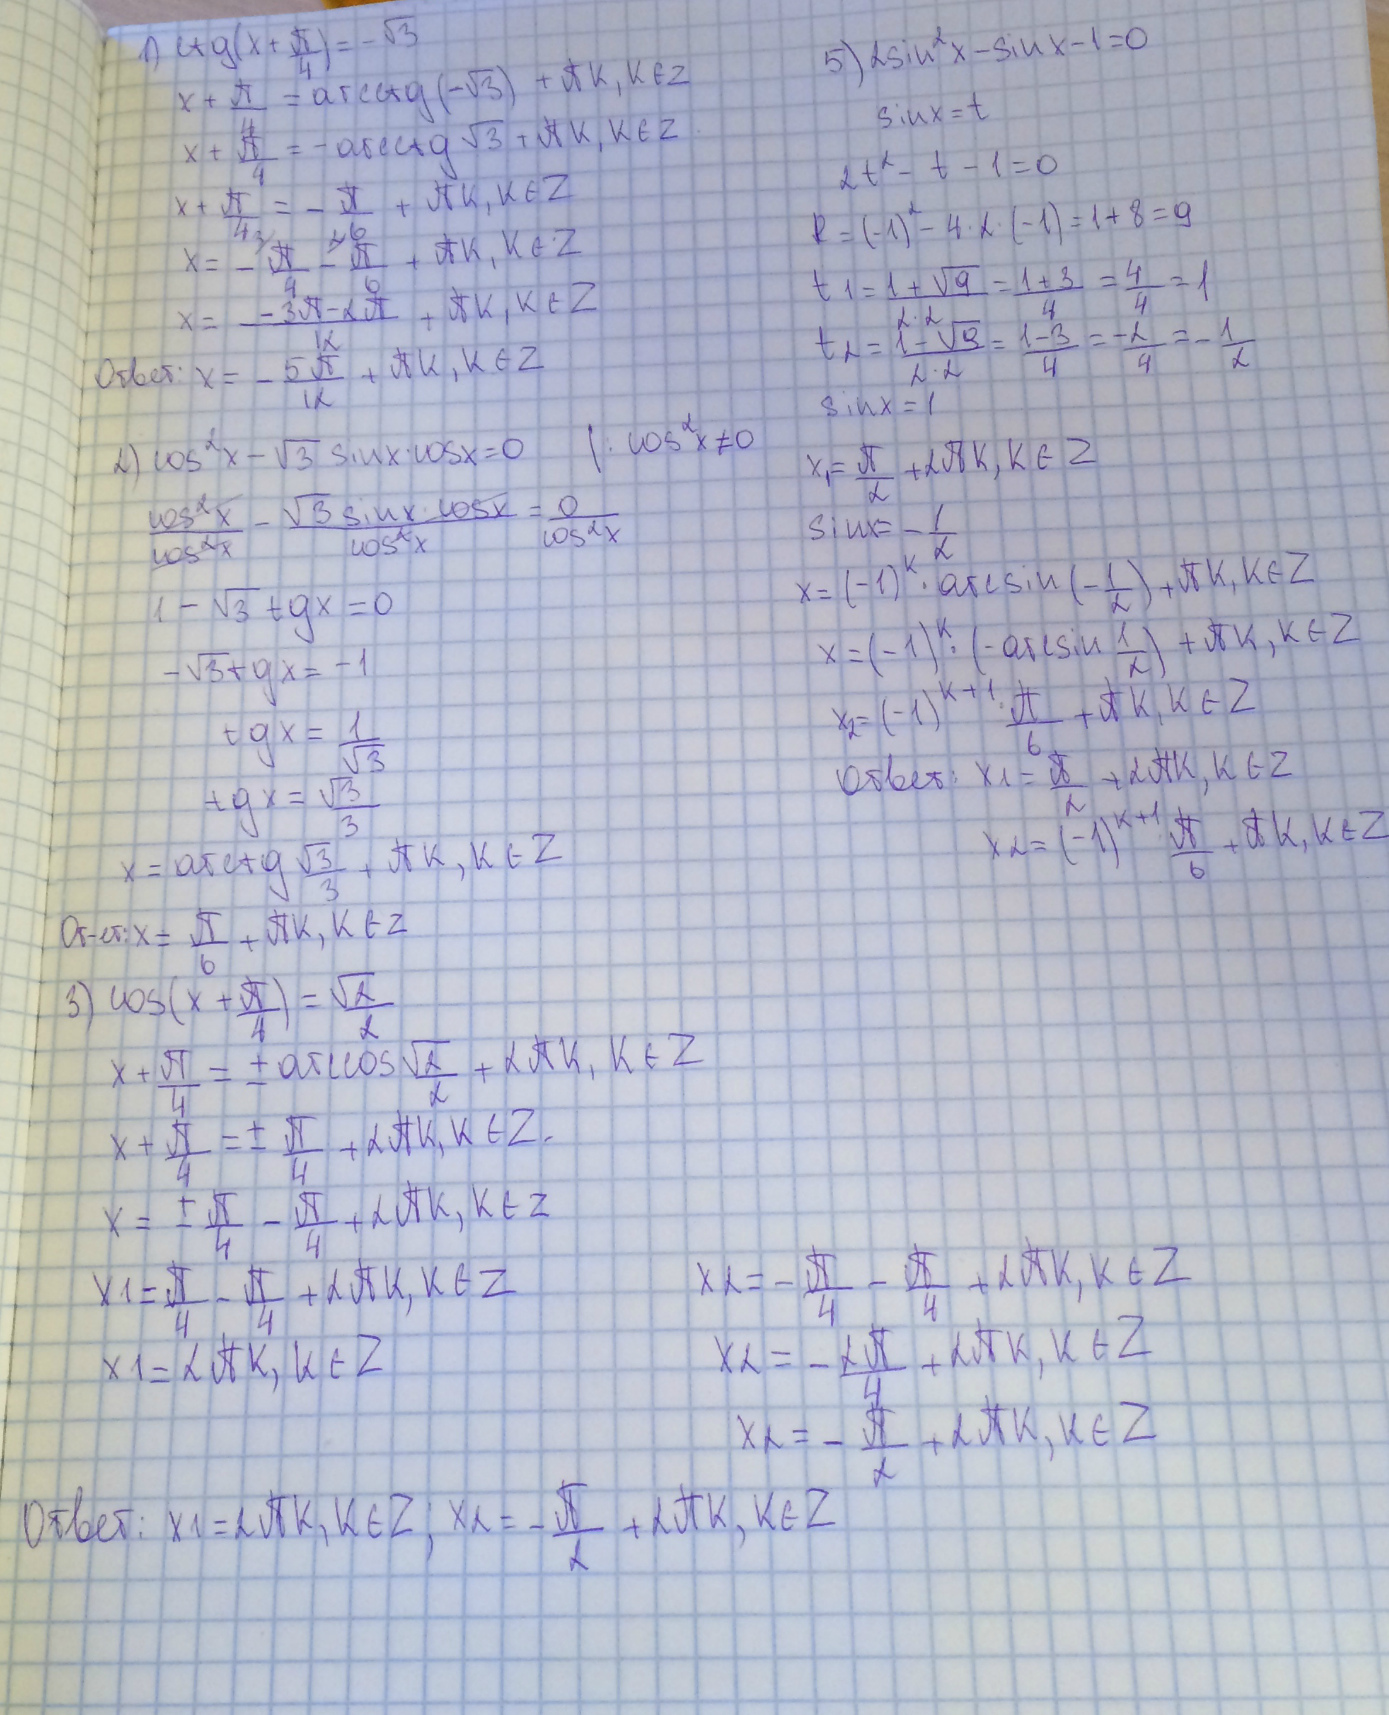 1) ctg(x + π/4) = -√3
x + π/4 = arcctg(-√3) + πk, k ∈ Z
x + π/4 = -arcctg √3 + πk, k ∈ Z
x + π/4 = - π/6 + πk, k ∈ Z
x = - π/4 - π/6 + πk, k ∈ Z
x = (-3π-2π)/12 + πk, k ∈ Z
Ответ: x = - 5π/12 + πk, k ∈ Z
2) cos²x - √3 sinx·cosx = 0 |: cos²x ≠ 0
cos²x/cos²x - √3 sinx·cosx/cos²x = 0/cos²x
1 - √3 tgx = 0
-√3 tgx = -1
tgx = 1/√3
tgx = √3/3
x = arctg √3/3 + πk, k ∈ Z
От-ет: x = π/6 + πk, k ∈ Z
3) cos(x + π/4) = √2/2
x + π/4 = ± arccos √2/2 + 2πk, k ∈ Z
x + π/4 = ± π/4 + 2πk, k ∈ Z.
x = ± π/4 - π/4 + 2πk, k ∈ Z
x1 = π/4 - π/4 + 2πk, k ∈ Z
x1 = 2πk, k ∈ Z
x2 = - π/4 - π/4 + 2πk, k ∈ Z
x2 = - 2π/4 + 2πk, k ∈ Z
x2 = - π/2 + 2πk, k ∈ Z
Ответ: x1 = 2πk, k ∈ Z; x2 = - π/2 + 2πk, k ∈ Z
5) 2sin²x - sinx - 1 = 0
sinx = t
2t² - t - 1 = 0
D = (-1)² - 4·2·(-1) = 1 + 8 = 9
t1 = (1+√9)/(2·2) = (1+3)/4 = 4/4 = 1
t2 = (1-√9)/(2·2) = (1-3)/4 = -2/4 = - 1/2
sinx = 1
x1 = π/2 + 2πk, k ∈ Z
sinx = - 1/2
x = (-1)^k · arcsin(- 1/2) + πk, k ∈ Z
x = (-1)^k · (-arcsin 1/2) + πk, k ∈ Z
x2 = (-1)^(k+1) · π/6 + πk, k ∈ Z
Ответ: x1 = π/2 + 2πk, k ∈ Z
x2 = (-1)^(k+1) · π/6 + πk, k ∈ Z